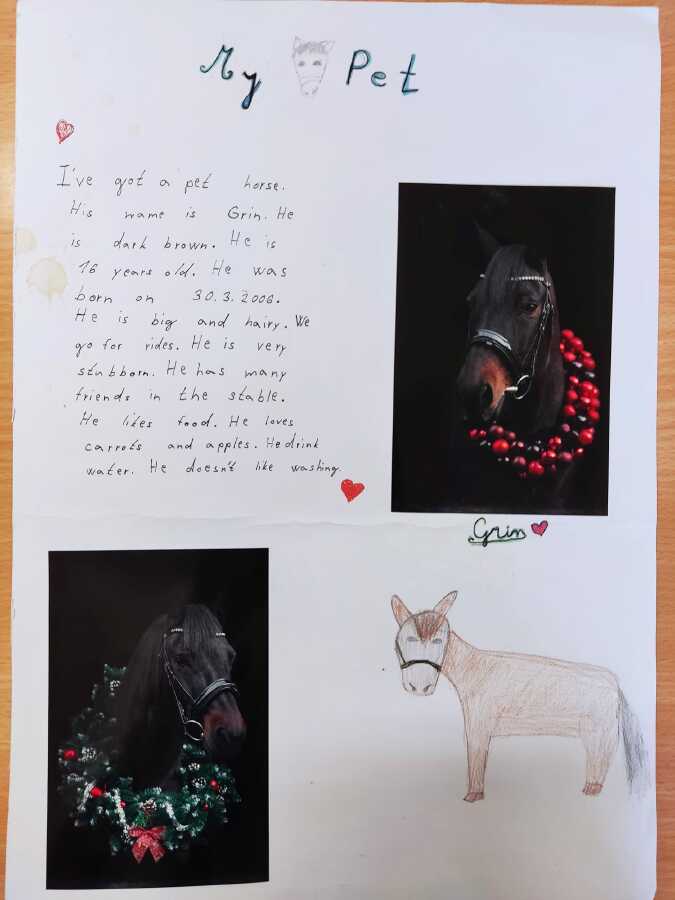 My Pet
I've got a pet horse.
His name is Grin. He
is dark brown. He is
16 years old. He was
born on 30.3.2006.
He is big and hairy. We
go for rides. He is very
stubborn. He has many
friends in the stable.
He likes food. He loves
carrots and apples. He drink
water. He doesn't like washing.
Grin